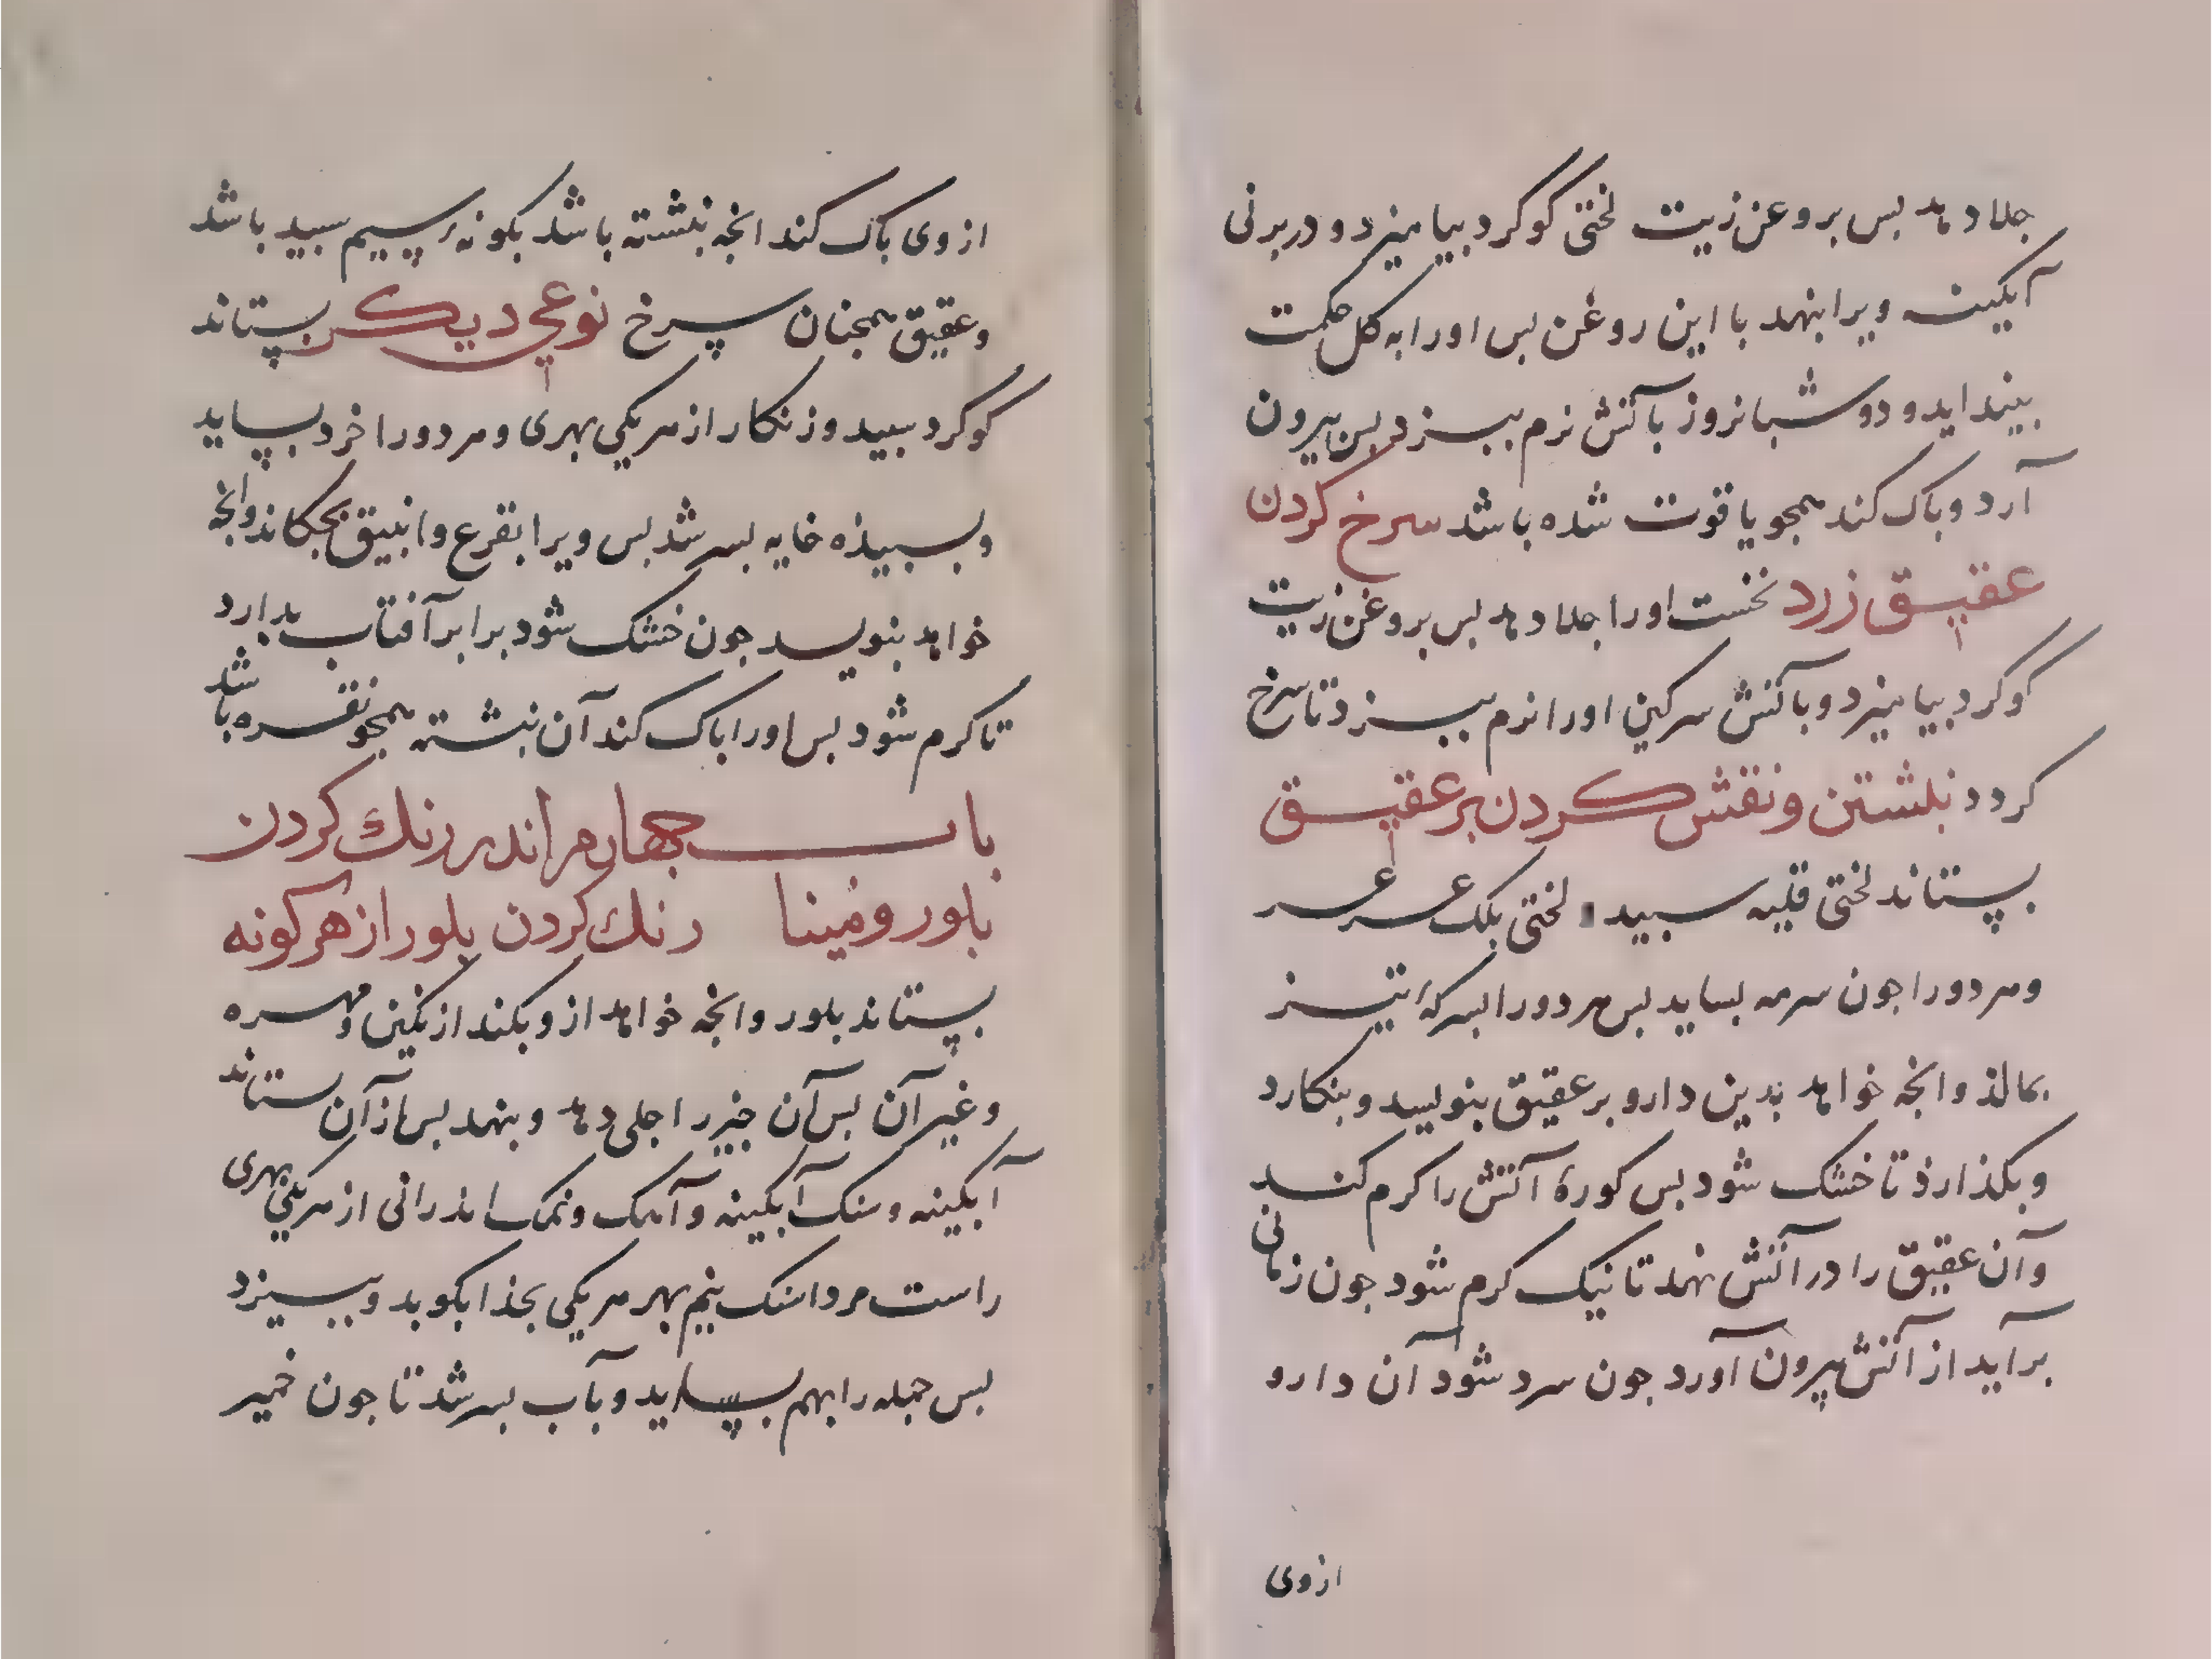 جلا دهد بس بروعن زیت لختی کوکرد بیامیزد و در برنی
آبکینه ویرا بنهد با این روغن بس اورا به کل حکمت
بیندايد و دو شبانروز بآتش نرم ببزد بس بیرون
آرد و باک کند همجو یاقوت شده باشد سرخ کردن
عقیق زرد نخست اورا جلا دهد بس بروغن زیت
کوکرد بیامیزد و بآتش سرکین اورا نرم ببزد تا سرخ
کردد نبشتن و نقش کردن بر عقیق
بستاند لختی قلیه سبید لختی بلک عرعر
و هر دو را جون سرمه بساید بس هر دو را بسرکهٔ تیز
بمالذ و انجه خواهد بدین دارو بر عقیق بنویسد و بنکارد
و بکذارذ تا خشک شود بس کورهٔ آتش را کرم کند
و آن عقیق را در آتش نهد تا نیک کرم شود جون زمانی
برآید از آتش بیرون آورد جون سرد شود آن دارو
ازوی
ازوی باک کند انجه نبشته باشد بکونهٔ سیم سبید باشد
و عقیق همجنان سرخ نوعی دیکر بستاند
کوکرد سبید و زنکار از هر یکی بهری و هر دو را خرد بساید
و بسبیذه خایه بسرشد بس ویرا بقرع و انبیق بجکاند و انجه
خواهد بنویسد جون خشک شود برابر آفتاب بدارد
تا کرم شود بس اورا باک کند آن نبشته همجو نقره باشد
باب جهارم اندر رنك کردن
بلور و مینا رنك کردن بلور از هر کونه
بستاند بلور و انجه خواهد ازو بکند از نکین و مهره
و غیر آن بس آن جیز را جلی دهد و بنهد بس از آن ستاند
آبکینه و سنک آبکینه و آهک و نمک اندرانی از هر یکی بهری
راست مرداسنک نیم بهر هر یکی بجذا بکوبد و ببیزد
بس جمله را بهم بساید و بآب بسرشد تا جون خمیر